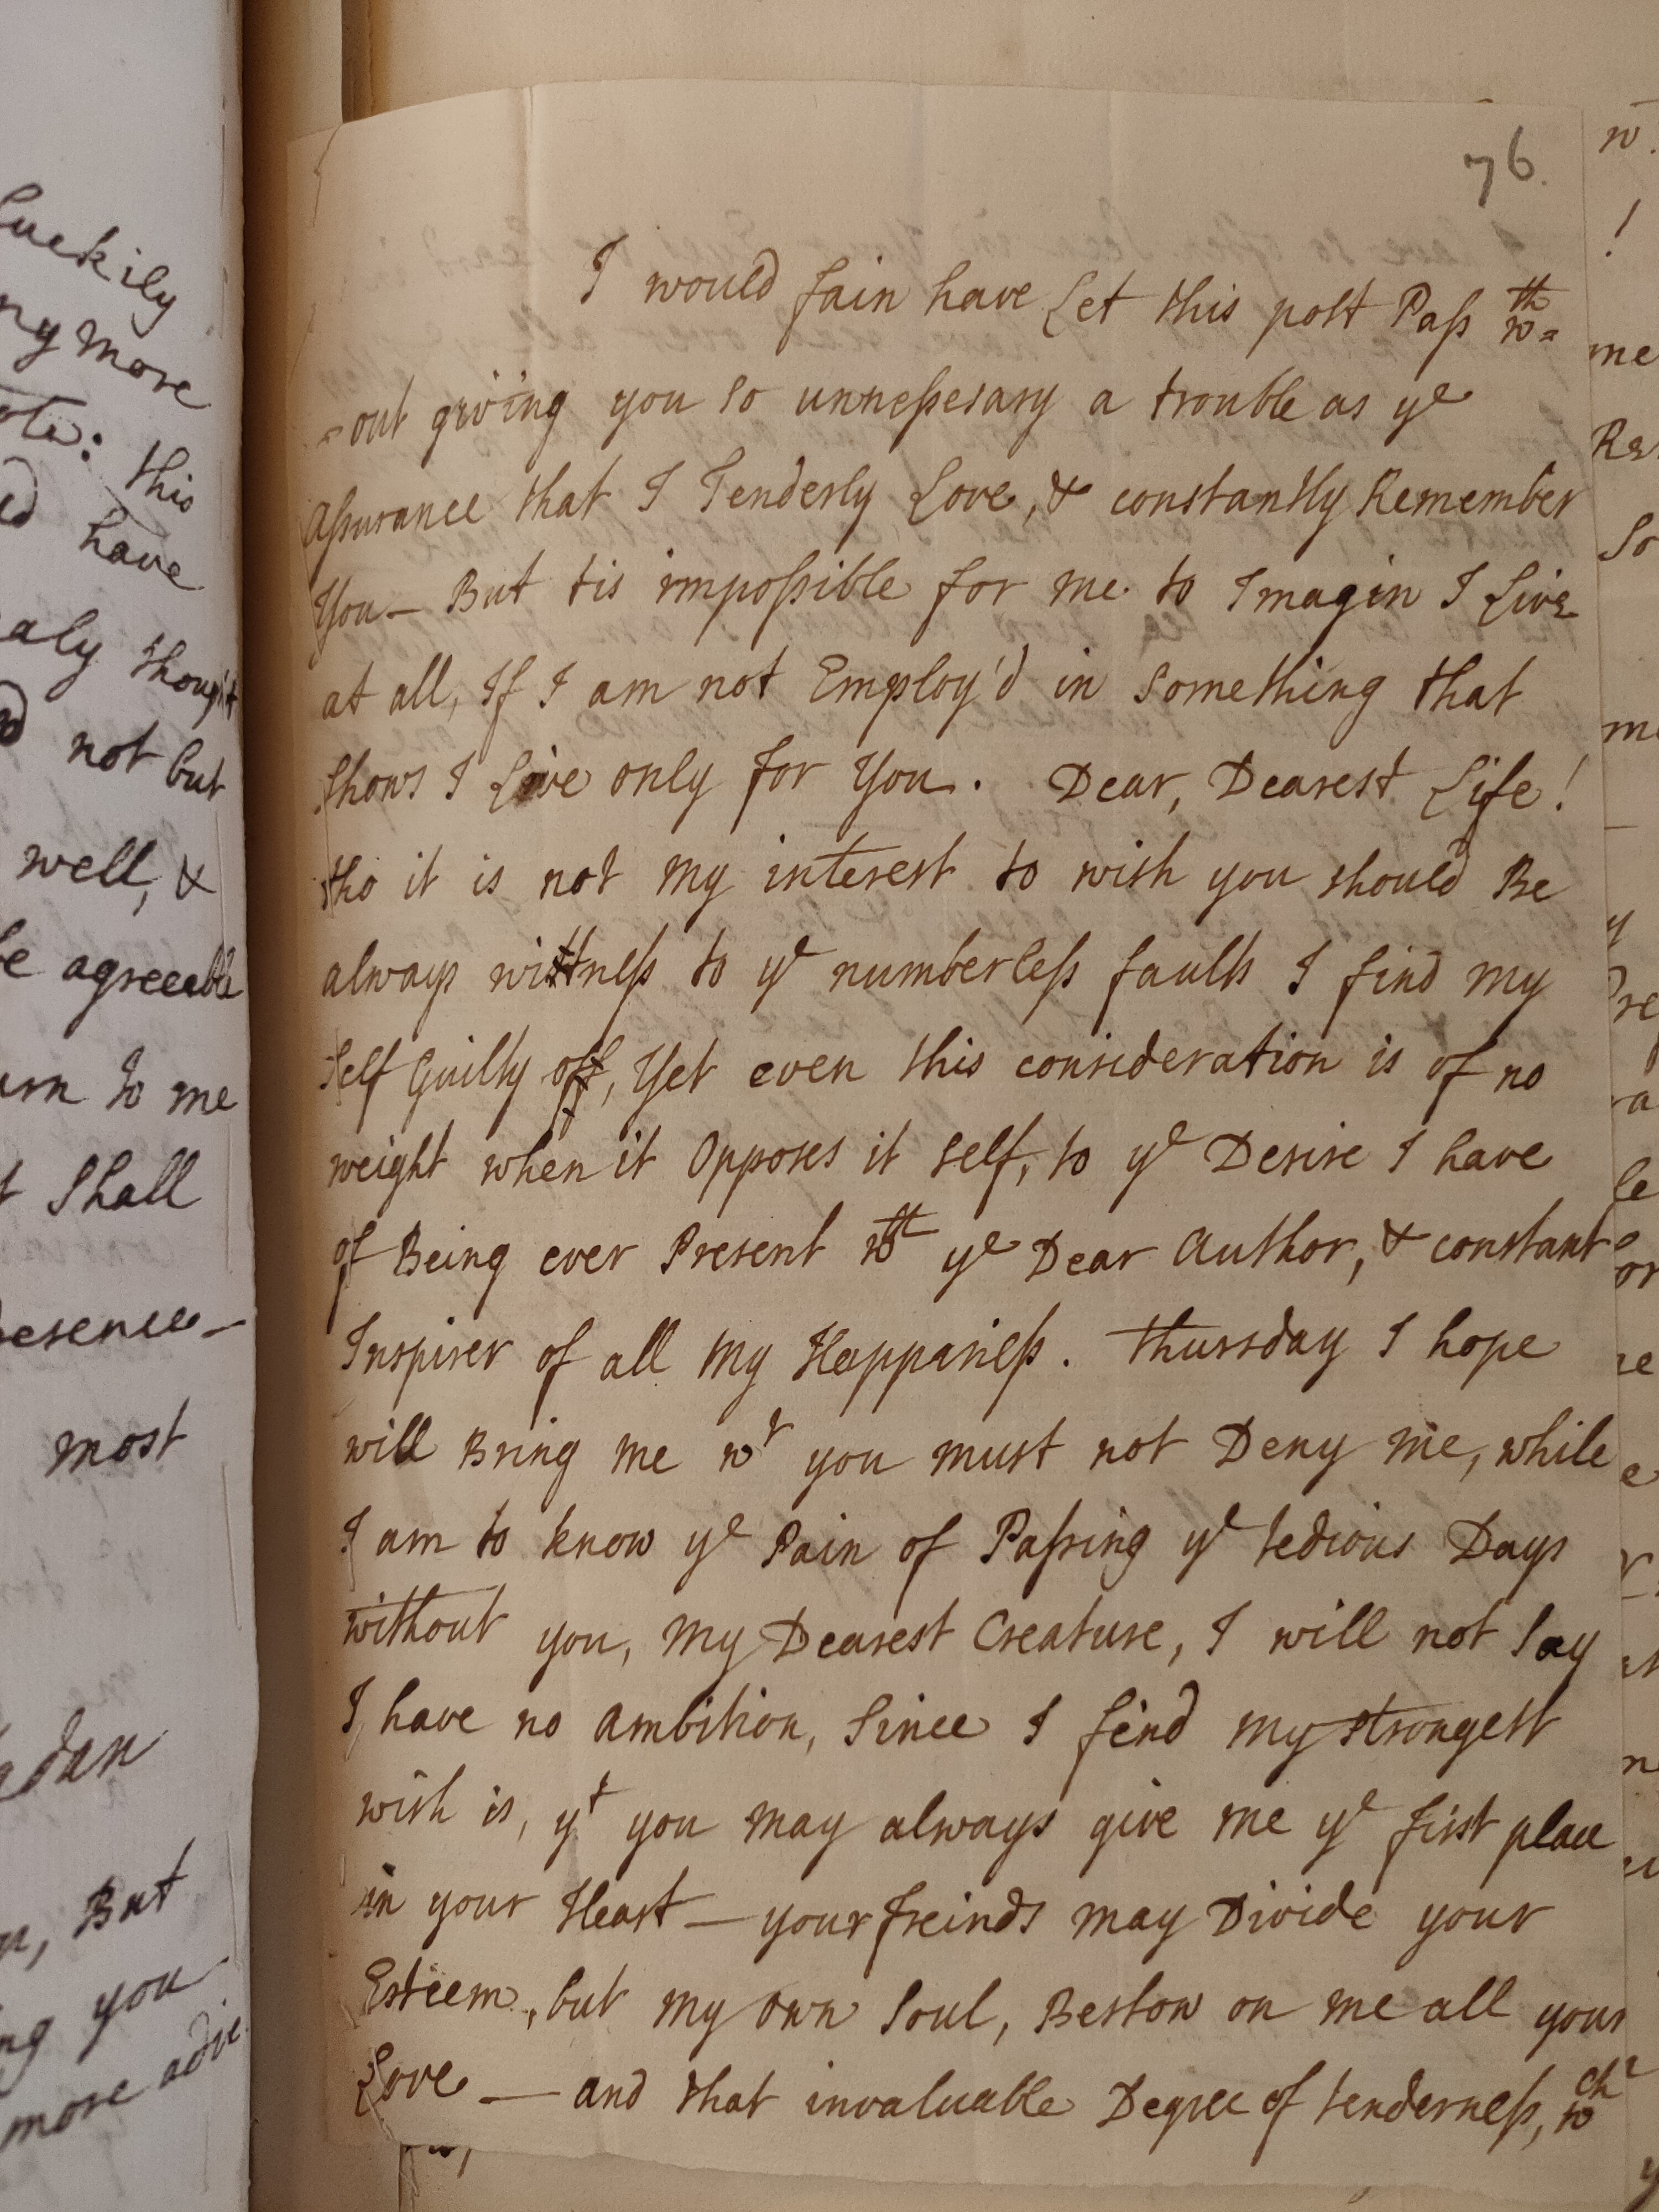 76.
I would fain have Let this post Pass wth=
-out giving you so unnessesary a trouble as ye
Assurance that I Tenderly Love, & constantly Remember
You— But tis impossible for me to Imagin I Live
at all, If I am not Employ'd in Something that
shows I Live only for You. Dear, Dearest Life!
tho it is not my interest to wish you should Be
always wittness to ye numberless faults I find my
self Guilty off, Yet even this consideration is of no
weight when it Opposes it self, to ye Desire I have
of Being ever Present wth ye Dear Author, & constant
Inspirer of all my Happaness. Thursday I hope
will Bring me wt you must not Deny me, while
I am to know ye Pain of Passing ye tedious Days
without you, my Dearest Creature, I will not Say
I have no ambition, Since I find my strongest
wish is, yt you may always give me ye first place
in your Heart— your freinds may Divide your
Esteem, but my own Soul, Bestow on me all your
Love — and that invaluable Degree of tenderness, wch
luckily
ny more
this
have
aly thoug't
not but
well, &
be agreeable
urn to me
t shall
resence—
most
But
ng you
more